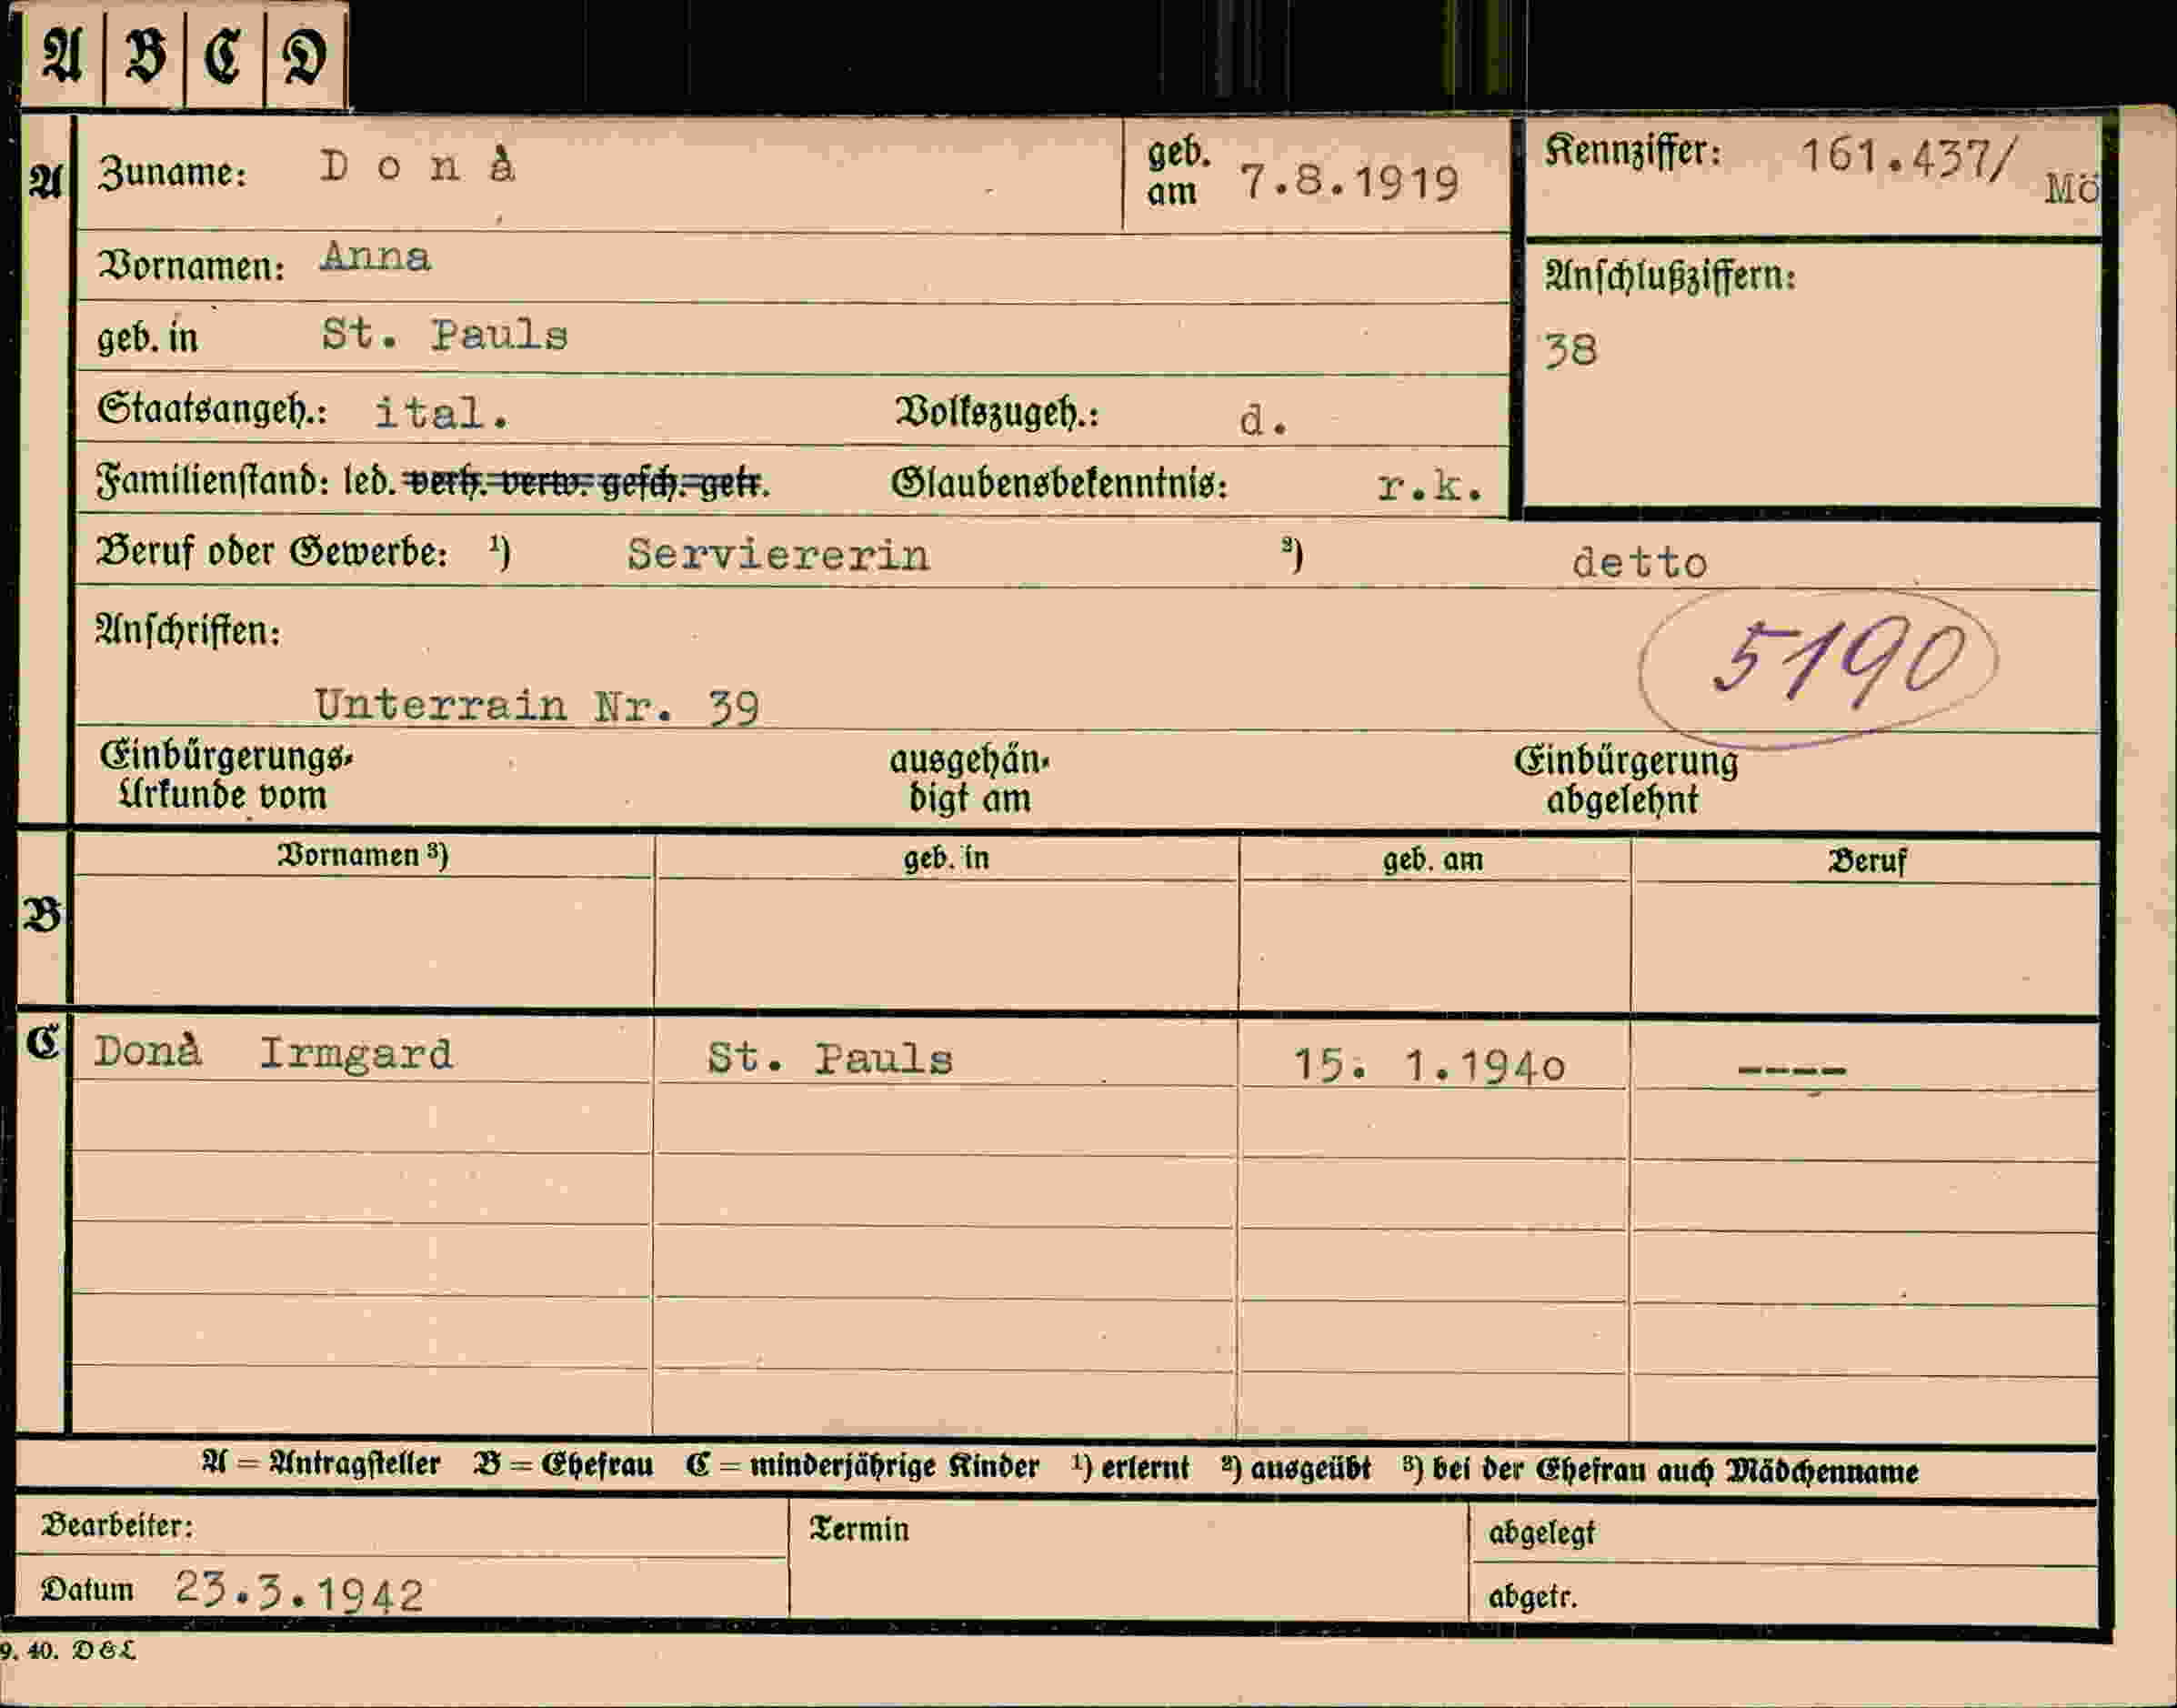 A B C D
A Zuname: D o n à geb. am 7.8.1919 Kennziffer: 161.437/ Mö
Vornamen: Anna
Anschlußziffern:
geb. in St. Pauls
38
Staatsangeh.: ital. Volkszugeh.: d.
Familienstand: led. verh. verw. gesch. getr. Glaubensbekenntnis: r.k.
Beruf oder Gewerbe: ¹) Serviererin ²) detto
Anschriften:
5190
Unterrain Nr. 39
Einbürgerungs- ausgehän- Einbürgerung
Urkunde vom digt am abgelehnt
Vornamen ³) geb. in geb. am Beruf
B
C Donà Irmgard St. Pauls 15. 1.1940 ----
A = Antragsteller B = Ehefrau C = minderjährige Kinder ¹) erlernt ²) ausgeübt ³) bei der Ehefrau auch Mädchenname
Bearbeiter: Termin abgelegt
Datum 23.3.1942 abgetr.
9. 40. D & L